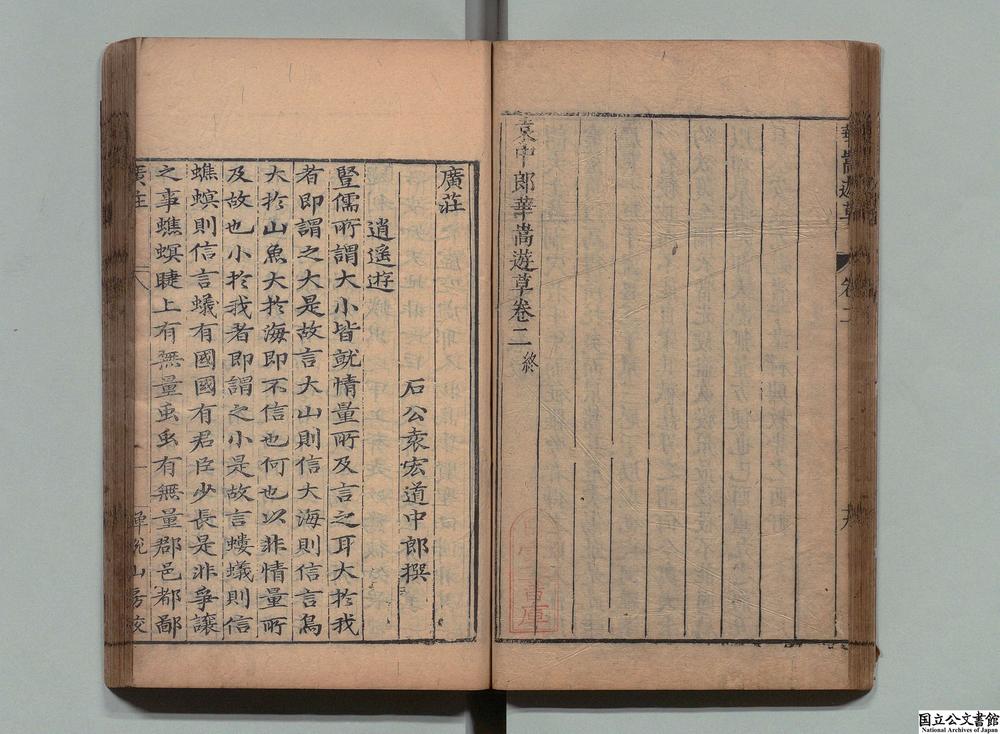 華嵩遊草 卷二 十九
袁中郎華嵩遊草卷二 終
廣莊
石公袁宏道中郎撰
逍遙遊
豎儒所謂大小皆就情量所及言之耳大於我
者即謂之大是故言大山則信大海則信言鳥
大於山魚大於海即不信也何也以非情量所
及故也小於我者即謂之小是故言螻蟻則信
蟭螟則信言蟻有國國有君臣少長是非爭讓
之事蟭螟睫上有無量虫虫有無量郡邑都鄙
廣莊
山房校
国立公文書館
National Archives of Japan